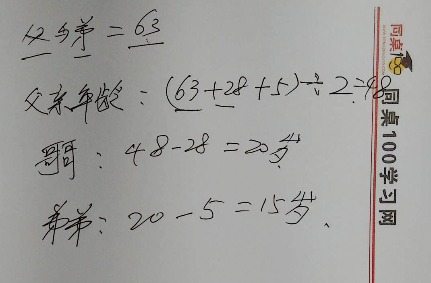 父与弟=63
父亲年龄:(63+28+5)÷2=48
哥哥:48-28=20岁
弟弟:20-5=15岁、
同桌100
同桌100学习网